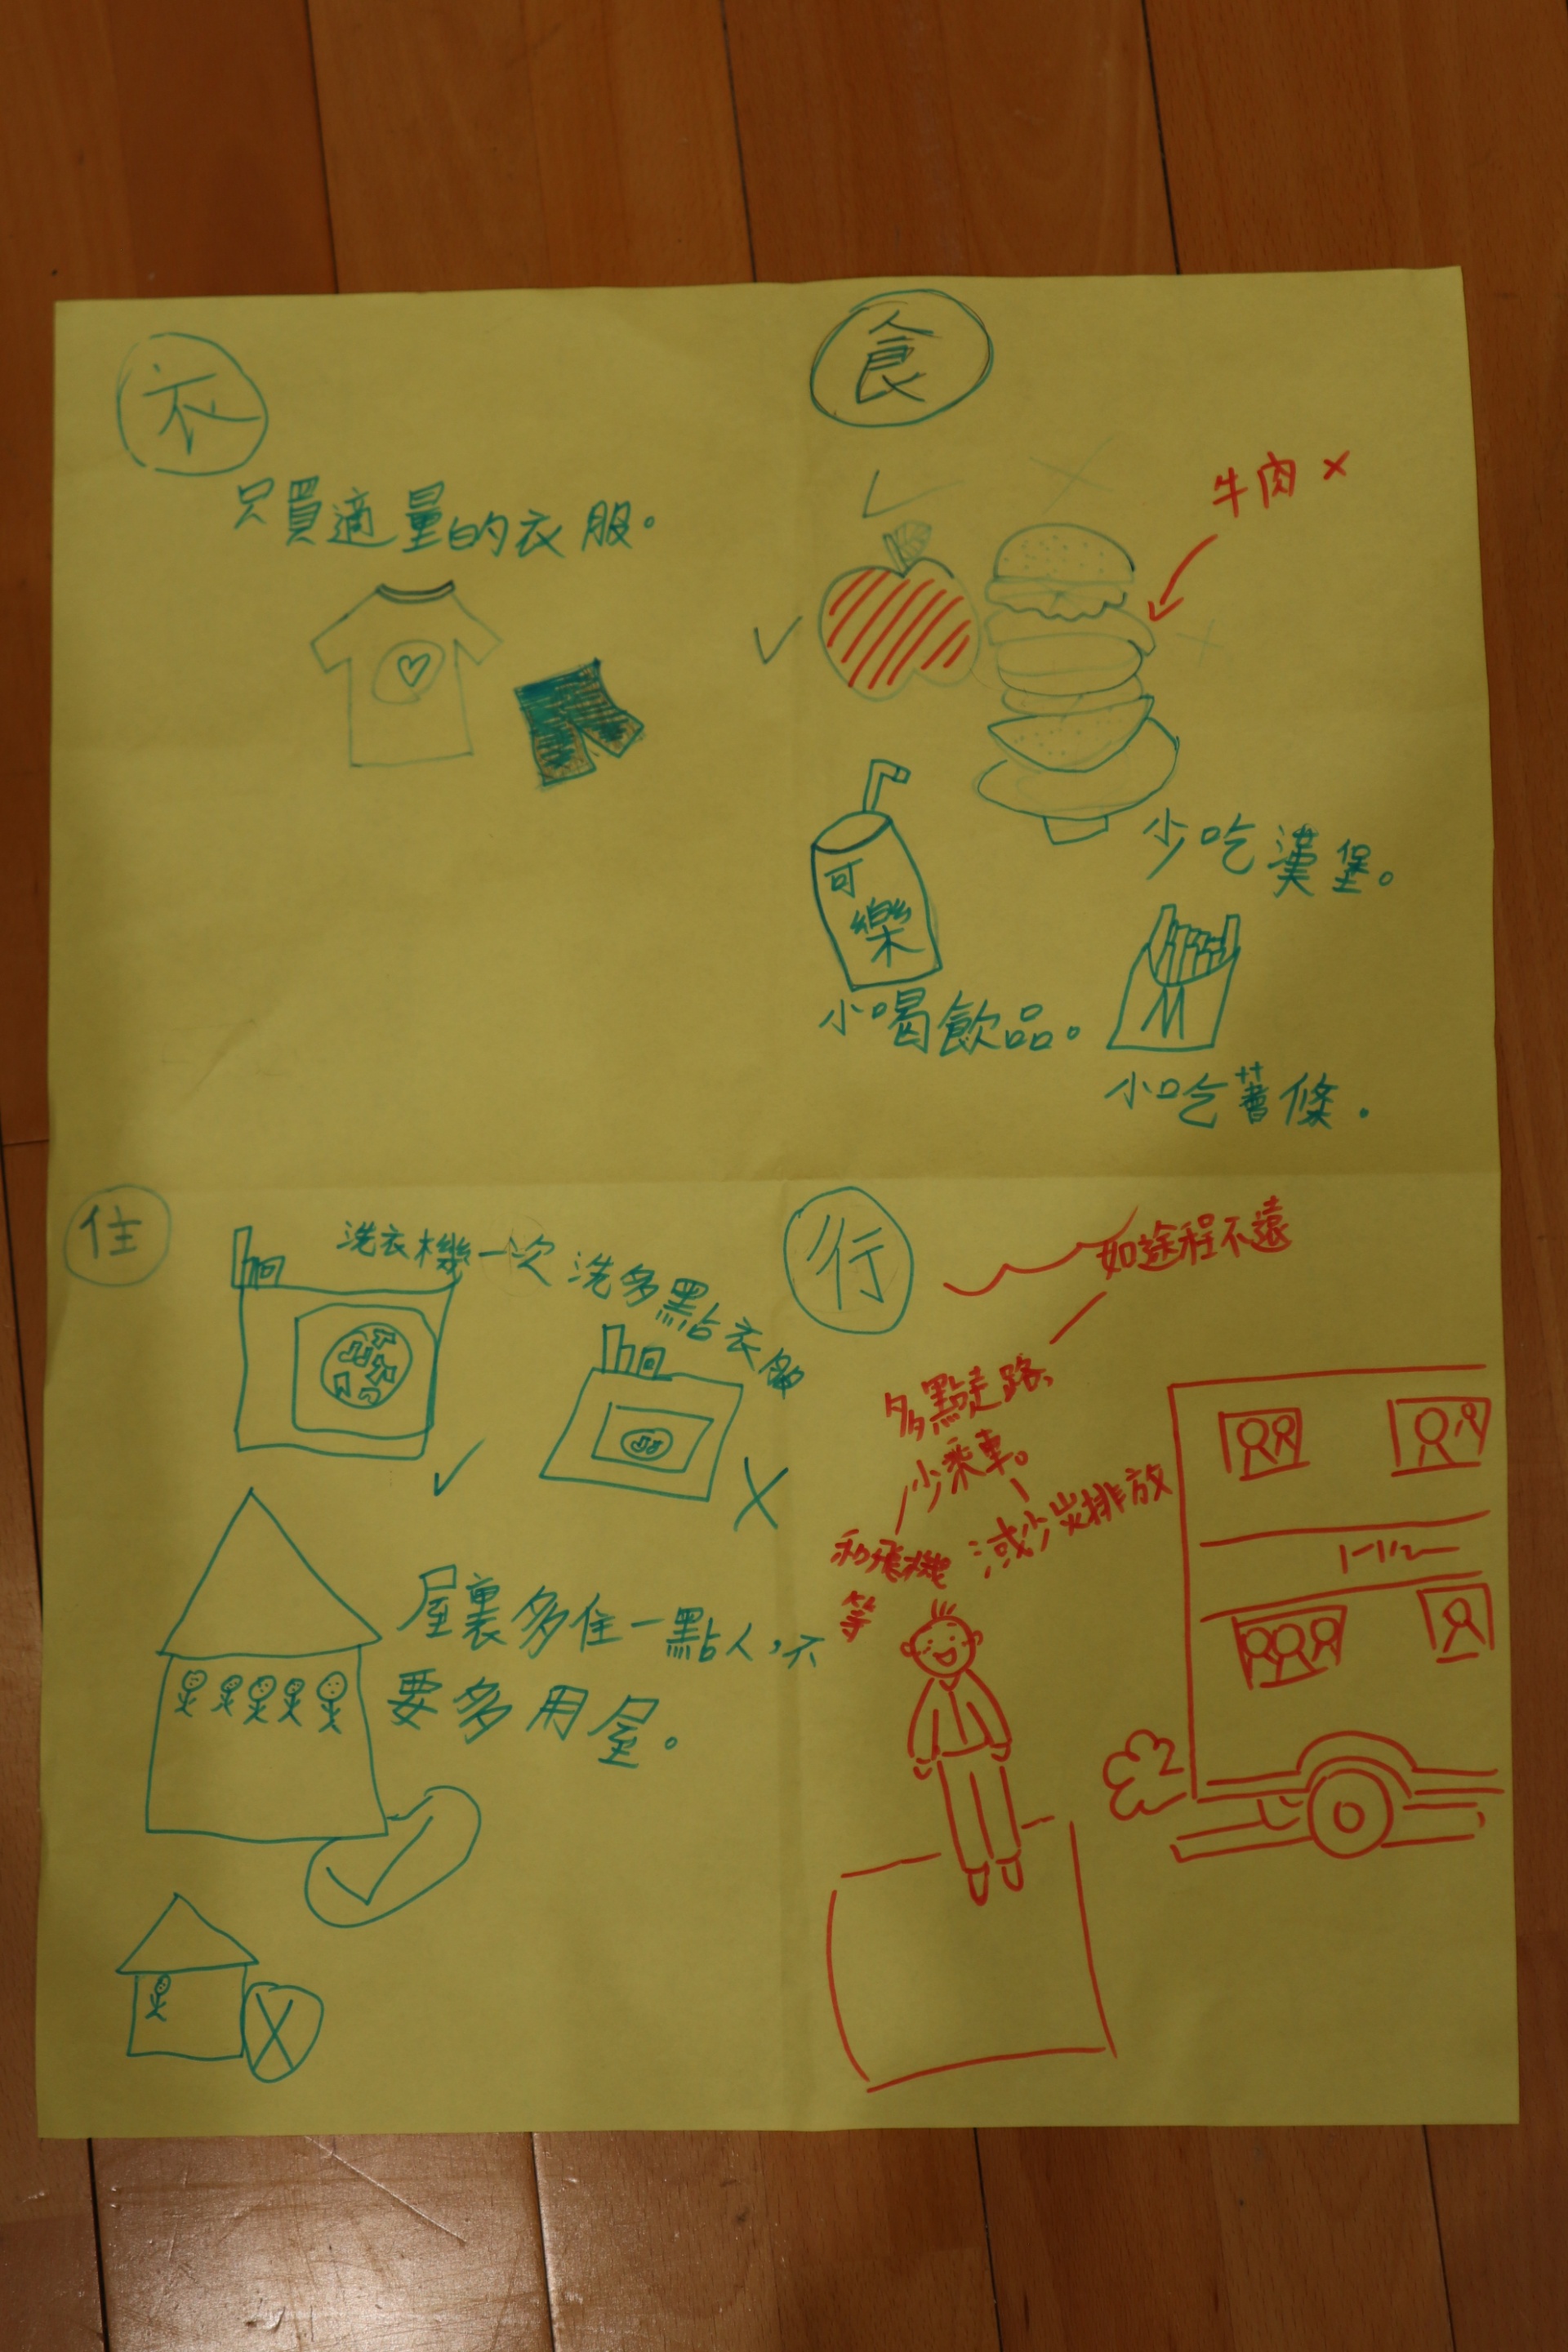 衣
只買適量的衣服。
食
牛肉×
少吃漢堡。
可
樂
小喝飲品。
小吃薯條.
住
洗衣機一次洗多點衣服
屋裏多住一點人,不
要多用屋。
行
如途程不遠
多點走路、
少乘車。
和飛機
等
減少炭排放